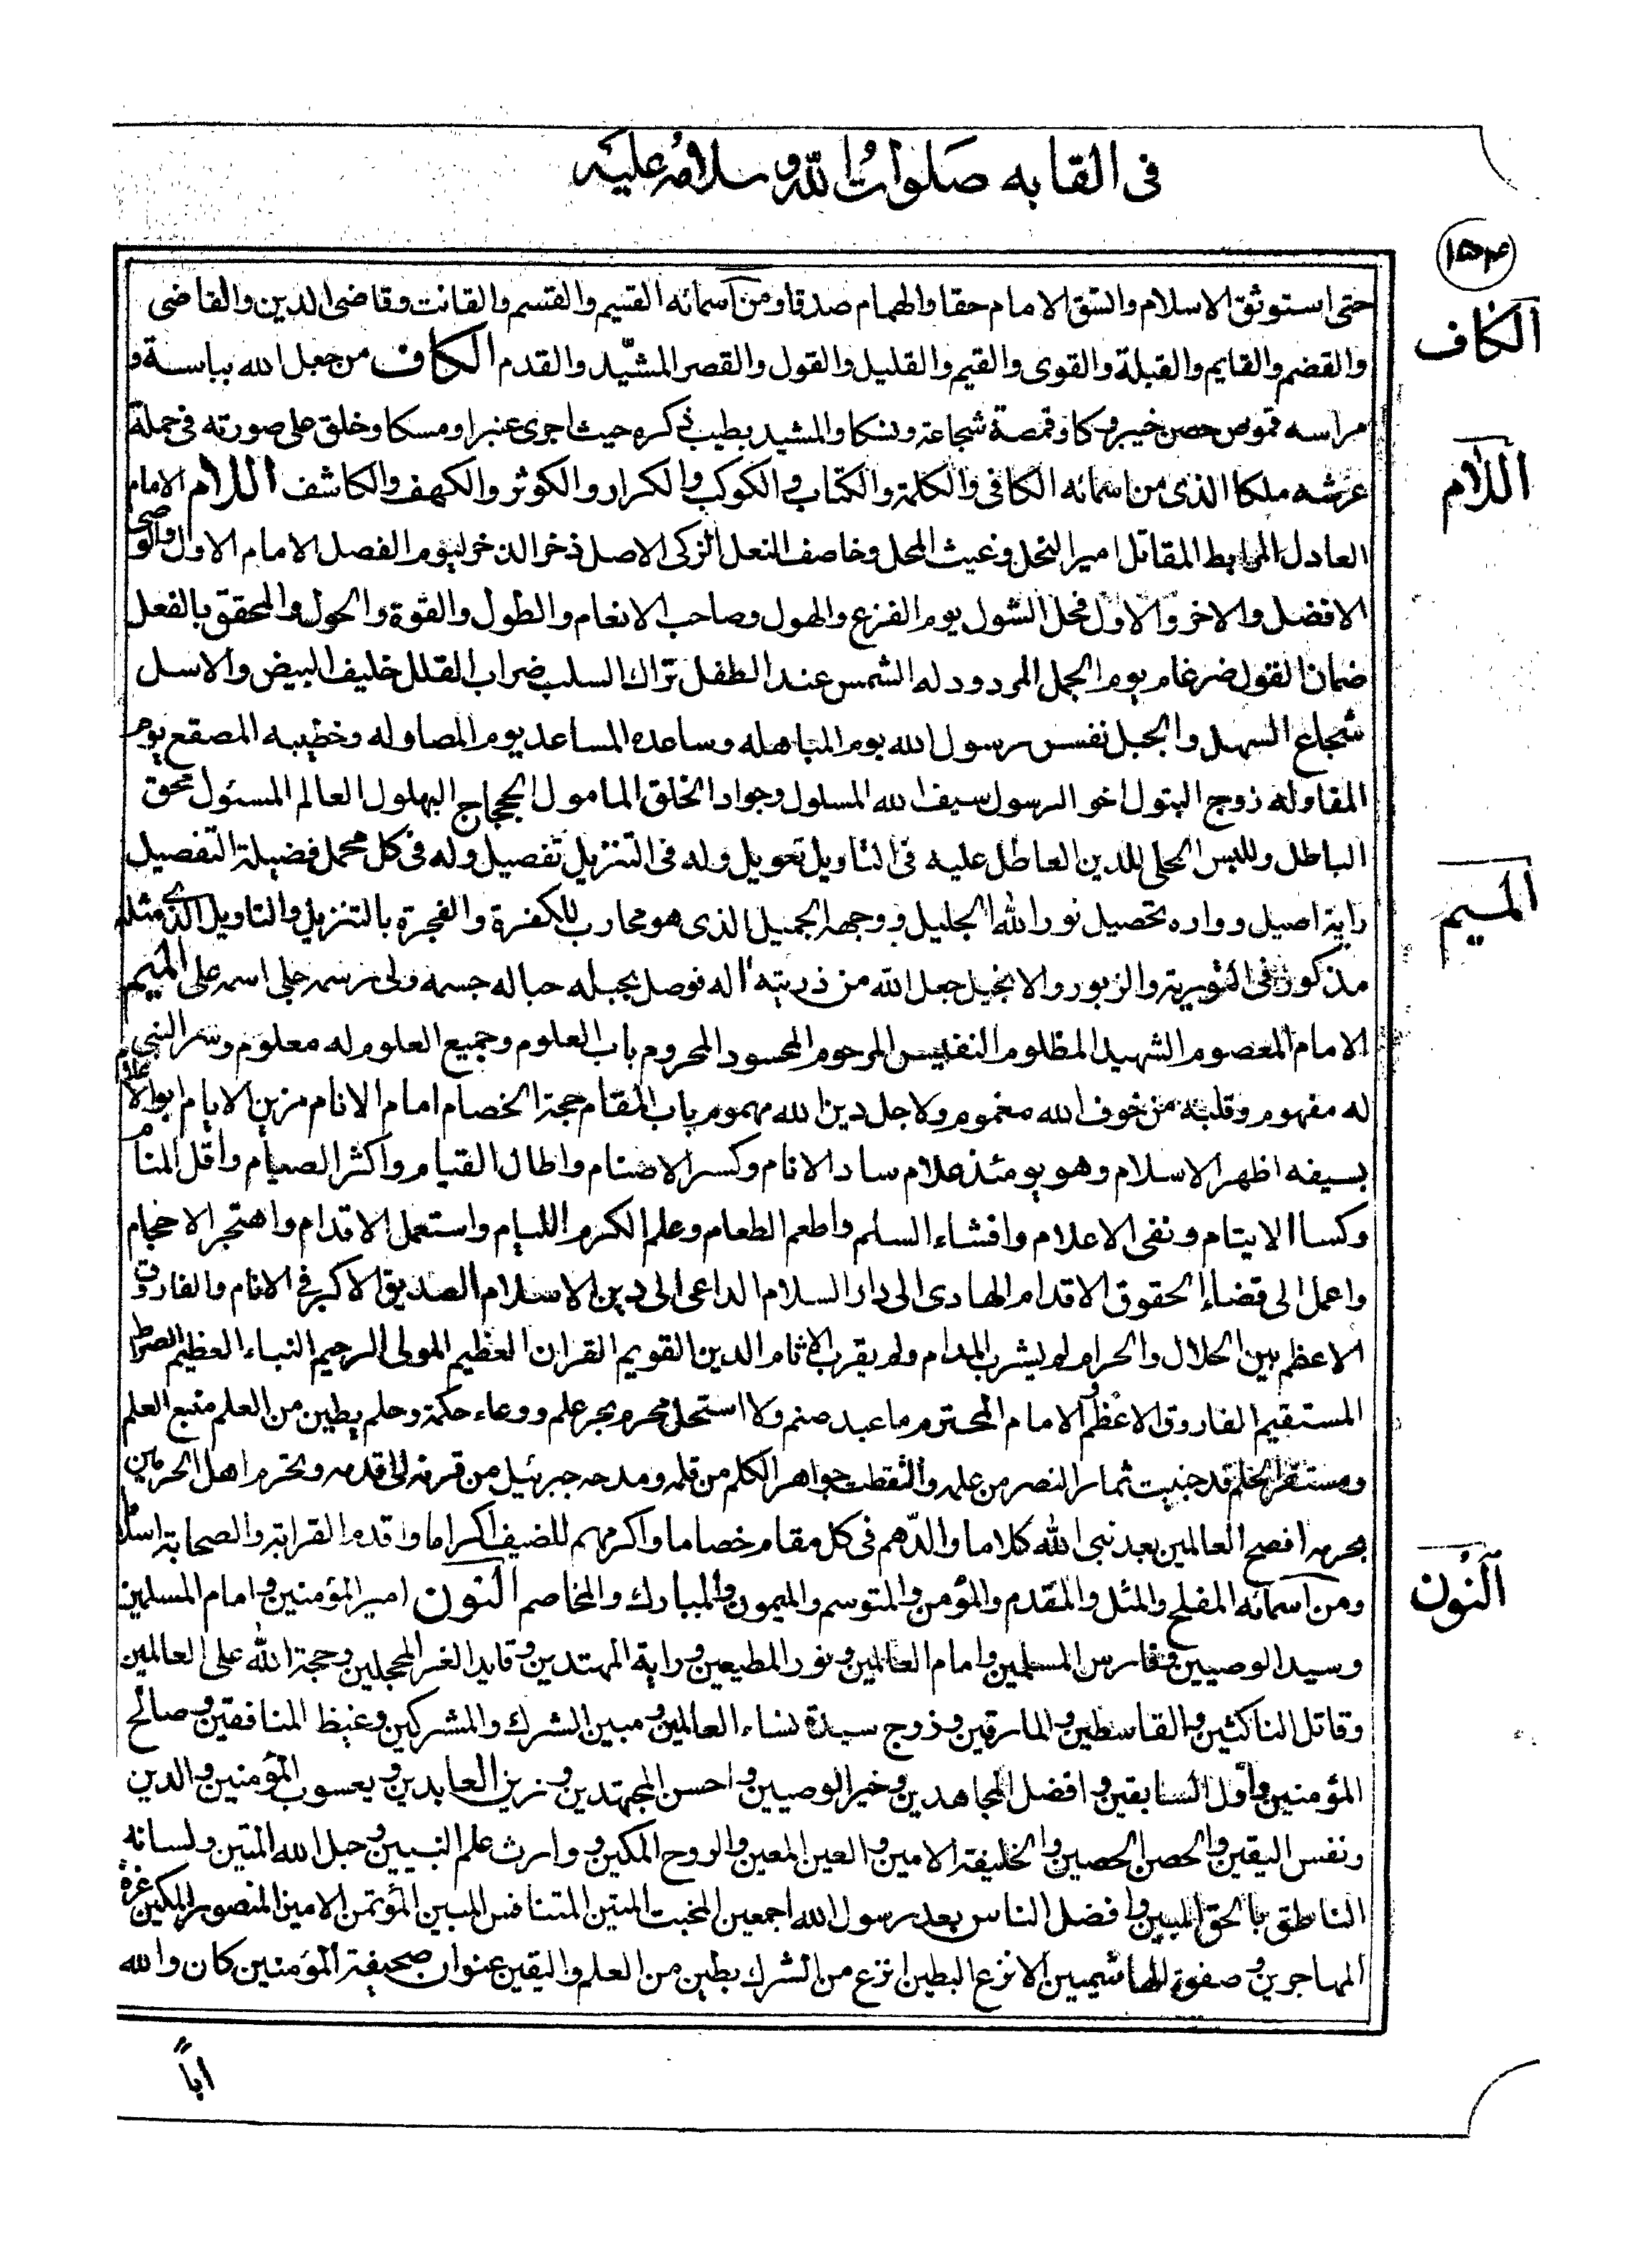 فى القابه صلوات الله وسلامه عليه
١٥٣
حتى استوثق الاسلام واتسق الامام حقا والهمام صدقا ومن اسمائه القسيم والقسم والقانت وقاضى الدين والقاضى
الكاف
والقضم والقايم والقبلة والقوى والقيم والقليل والقول والقصر المشيّد والقدم الكاف من جعل الله بباسة و
مراسه قموص حصن خيبر دكا وقمصة شجاعة ونسكا والمشيد بطيب ذكره حيث اجرى عنبرا ومسكا وخلق على صورته فى حملة
عرشه ملكا الذى من اسمائه الكافى والكلمة والكتاب والكوكب والكرار والكوثر والكهف والكاشف اللام الامام
اللام
العادل المرابط المقاتل امير النحل وغيث المحل وخاصف النعل الزكى الاصل ذخر الذخر ليوم الفصل الامام الاول والوصى
الافضل والاخر والاول فحل الشول يوم الفزع والهول وصاحب الانعام والطول والقوة والحول والمحقق بالفعل
ضمان القول ضرغام يوم الجمل المردود له الشمس عند الطفل تراك السلب ضراب القلل خليف البيض والاسل
شجاع السهل والجبل نفس رسول الله يوم المباهله وساعده المساعد يوم المصاوله وخطيبه المصقع يوم
المقاوله زوج البتول اخو الرسول سيف الله المسلول وجواد الخلق المامول الججاج البهلول العالم المسئول محق
الباطل وللبس الحلى للدين العاطل عليه فى التاويل تعويل وله فى التنزيل تفصيل وله فى كل مجمل فضيلة التفصيل
الميم
راية اصيل وواره تحصيل نور الله الجليل ووجهه الجميل الذى هو محارب للكفرة والفجرة بالتنزيل والتاويل الذى مثله
مذكور فى التورية والزبور والانجيل جعل الله من ذريته اله فوصل بحبله حباله جسمه ولى رسمه جلى اسمه على الميم
الامام المعصوم الشهيد المظلوم النفيس المرحوم المحسود المحروم باب العلوم وجميع العلوم له معلوم وسر النبى
له مفهوم وقلبه من خوف الله مغموم ولاجل دين الله مهموم باب المقام حجة الخصام امام الانام مزين الايام ابو الاعلام
بسيفه اظهر الاسلام وهو يومئذ غلام ساد الانام وكسر الاصنام واطال القيام واكثر الصيام واقل المنام
وكسا الايتام ونفى الاعلام وافشاء السلم واطعم الطعام وعلم الكرم الليام واستعمل الاقدام واهتجر الاحجام
واعمل الى قضاء الحقوق الاقدام الهادى الى دار السلام الداعى الى دين الاسلام الصديق الاكبر فى الانام والفاروق
الاعظم بين الحلال والحرام لم يشرب المدام ولم يقرب الاثام الدين القويم القران العظيم المولى الرحيم النباء العظيم الصراط
المستقيم الفاروق الاعظم والامام المحترم ما عبد صنم ولا استحل محرم بحر علم ووعاء حكمة وحلم بطين من العلم منبع العلم
ومستقر الحلم قد جنيت ثمار النصر من علمه والتقطت جواهر الكلم من قلمه ومدحه جبرئيل من قرنه الى قدمه ويحترم اهل الحرمين
بحرمه افصح العالمين بعد نبى الله كلاما والدّهم فى كل مقام خصاما واكرمهم للضيف اكراما واقدم القرابة والصحابة اسلاما
ومن اسمائه المفلح والمثل والمقدم والمؤمن والمتوسم والميمون والمبارك والمخاصم النون امير المؤمنين وامام المسلمين
النون
وسيد الوصيين وفارس المسلمين وامام العالمين ونور المطيعين وراية المهتدين وقايد الغر المحجلين وحجة الله على العالمين
وقاتل الناكثين والقاسطين والمارقين وزوج سيدة نساء العالمين ومبين الشرك والمشركين وغيظ المنافقين وصالح
المؤمنين واول السابقين وافضل المجاهدين وخير الوصيين واحسن المجتهدين وزين العابدين ويعسوب المؤمنين والدين
ونفس اليقين والحصن الحصين والخليفة الامين والعين المعين والروح المكين ووارث علم النبيين وحبل الله المتين ولسانه
الناطق بالحق المبين وافضل الناس بعد رسول الله اجمعين المخبت المتين المتنافس المبين المؤتمن الامين المنصور المكين غرة
المهاجرين وصفوة الهاشميين الانزع البطين انزع من الشرك بطين من العلم واليقين عنوان صحيفة المؤمنين كان والله
اباً